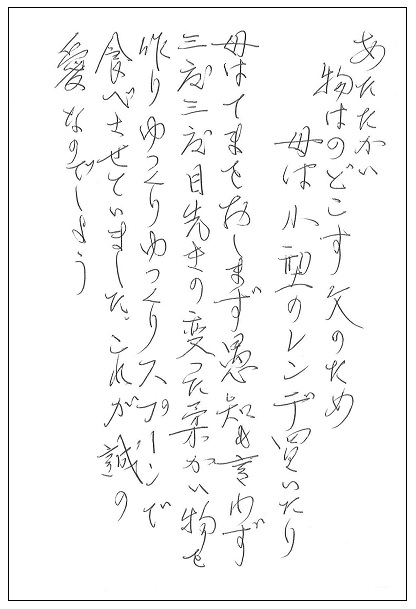 あたたかい
物はのどこす父のため
母は小型のレンヂ買いたり
母はてまをおしまず愚知も言わず
三度三度目先きの変った柔かい物を
作りゆっくりゆっくりスプーンで
食べさせていました。これが誠の
愛なのでしょう